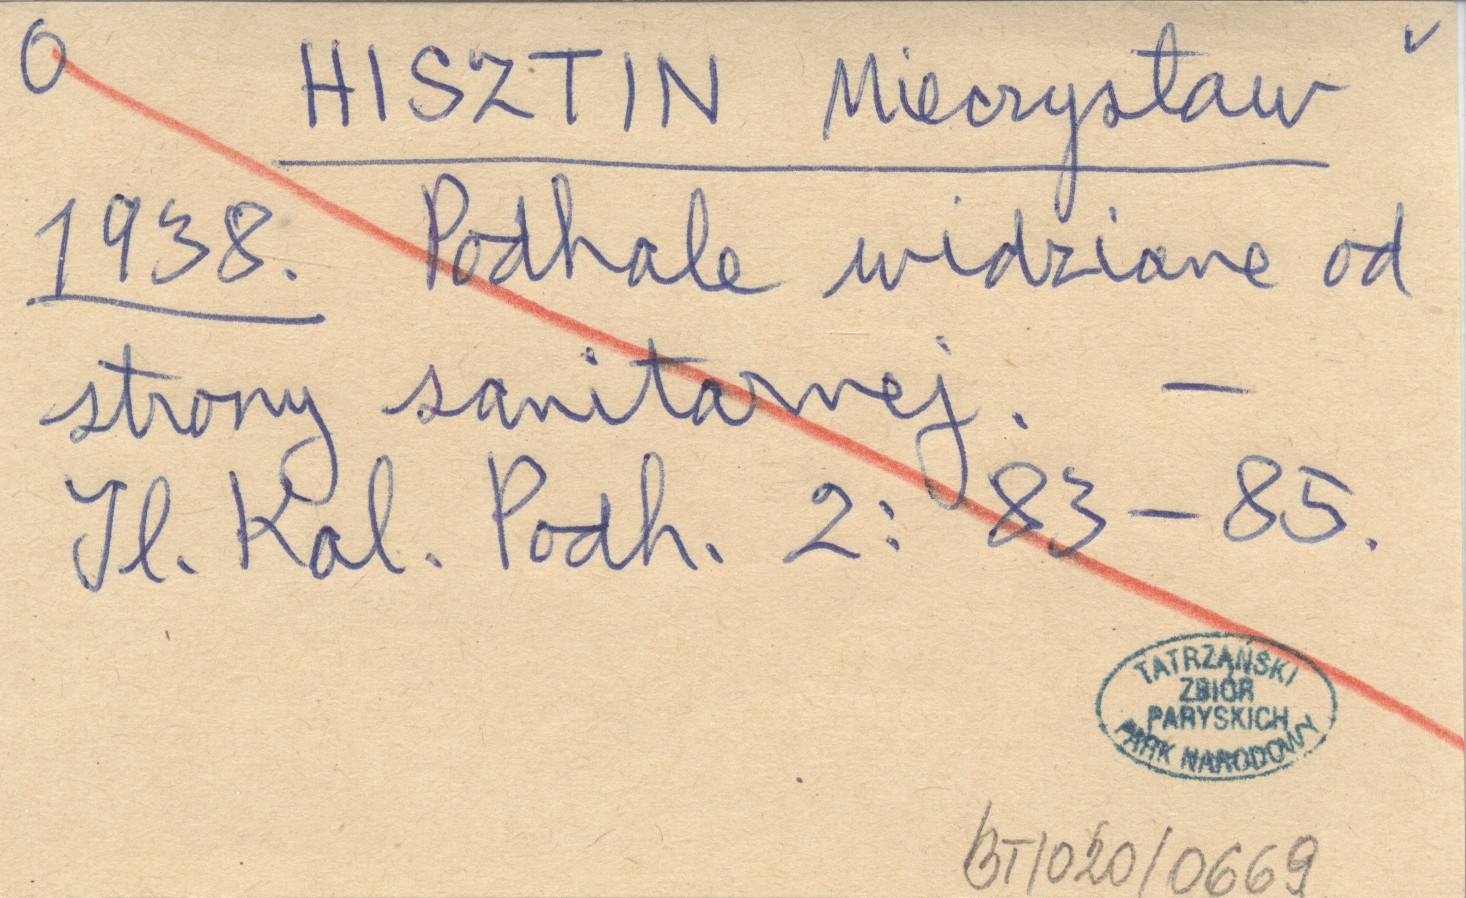 O HISZTIN Mieczysław ✓
1938. Podhale widziane od
strony sanitarnej. —
Il. Kal. Podh. 2: 83-85.
TATRZAŃSKI
ZBIÓR
PARYSKICH
PARK NARODOWY
BT/020/0669